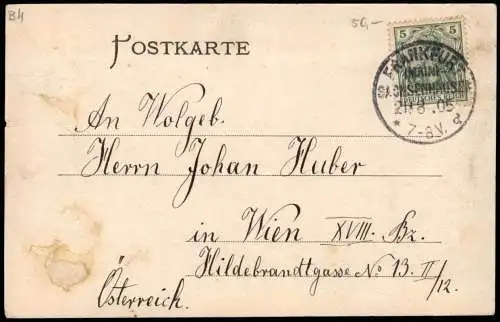 B4
50,-
POSTKARTE
5 5
FRANKFURT
(MAIN)
SACHSENHAUSEN
* 7-8V. d
An Wolgeb.
Herrn Johan Huber
in Wien XVIII. Bz.
Hildebrandtgasse No 13. II/12.
Österreich.